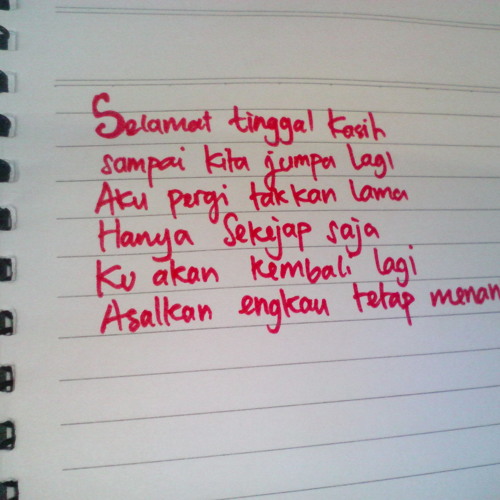 Selamat tinggal kasih
sampai kita jumpa lagi
Aku pergi takkan lama
Hanya Sekejap saja
Ku akan kembali lagi
Asalkan engkau tetap menan